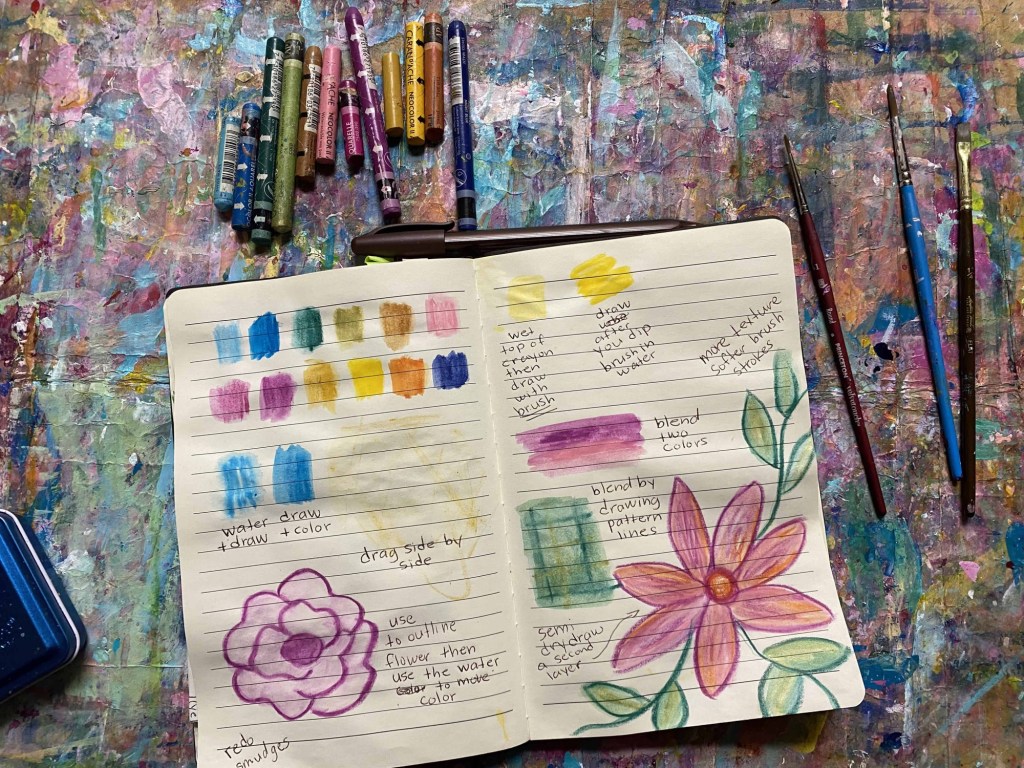 CARAN D'ACHE
NEOCOLOR II
D'ACHE NEOCOLOR II
water draw
+draw +color
drag side by
side
use
to outline
flower then
use the water
color to move
color
redo
smudges
wet
top of
crayon
then
draw
with
brush
draw
after
you dip
brush in
water
more texture
softer brush
strokes
blend
two
colors
blend by
drawing
pattern
lines
semi
dry draw
a second
layer
PRINCETON